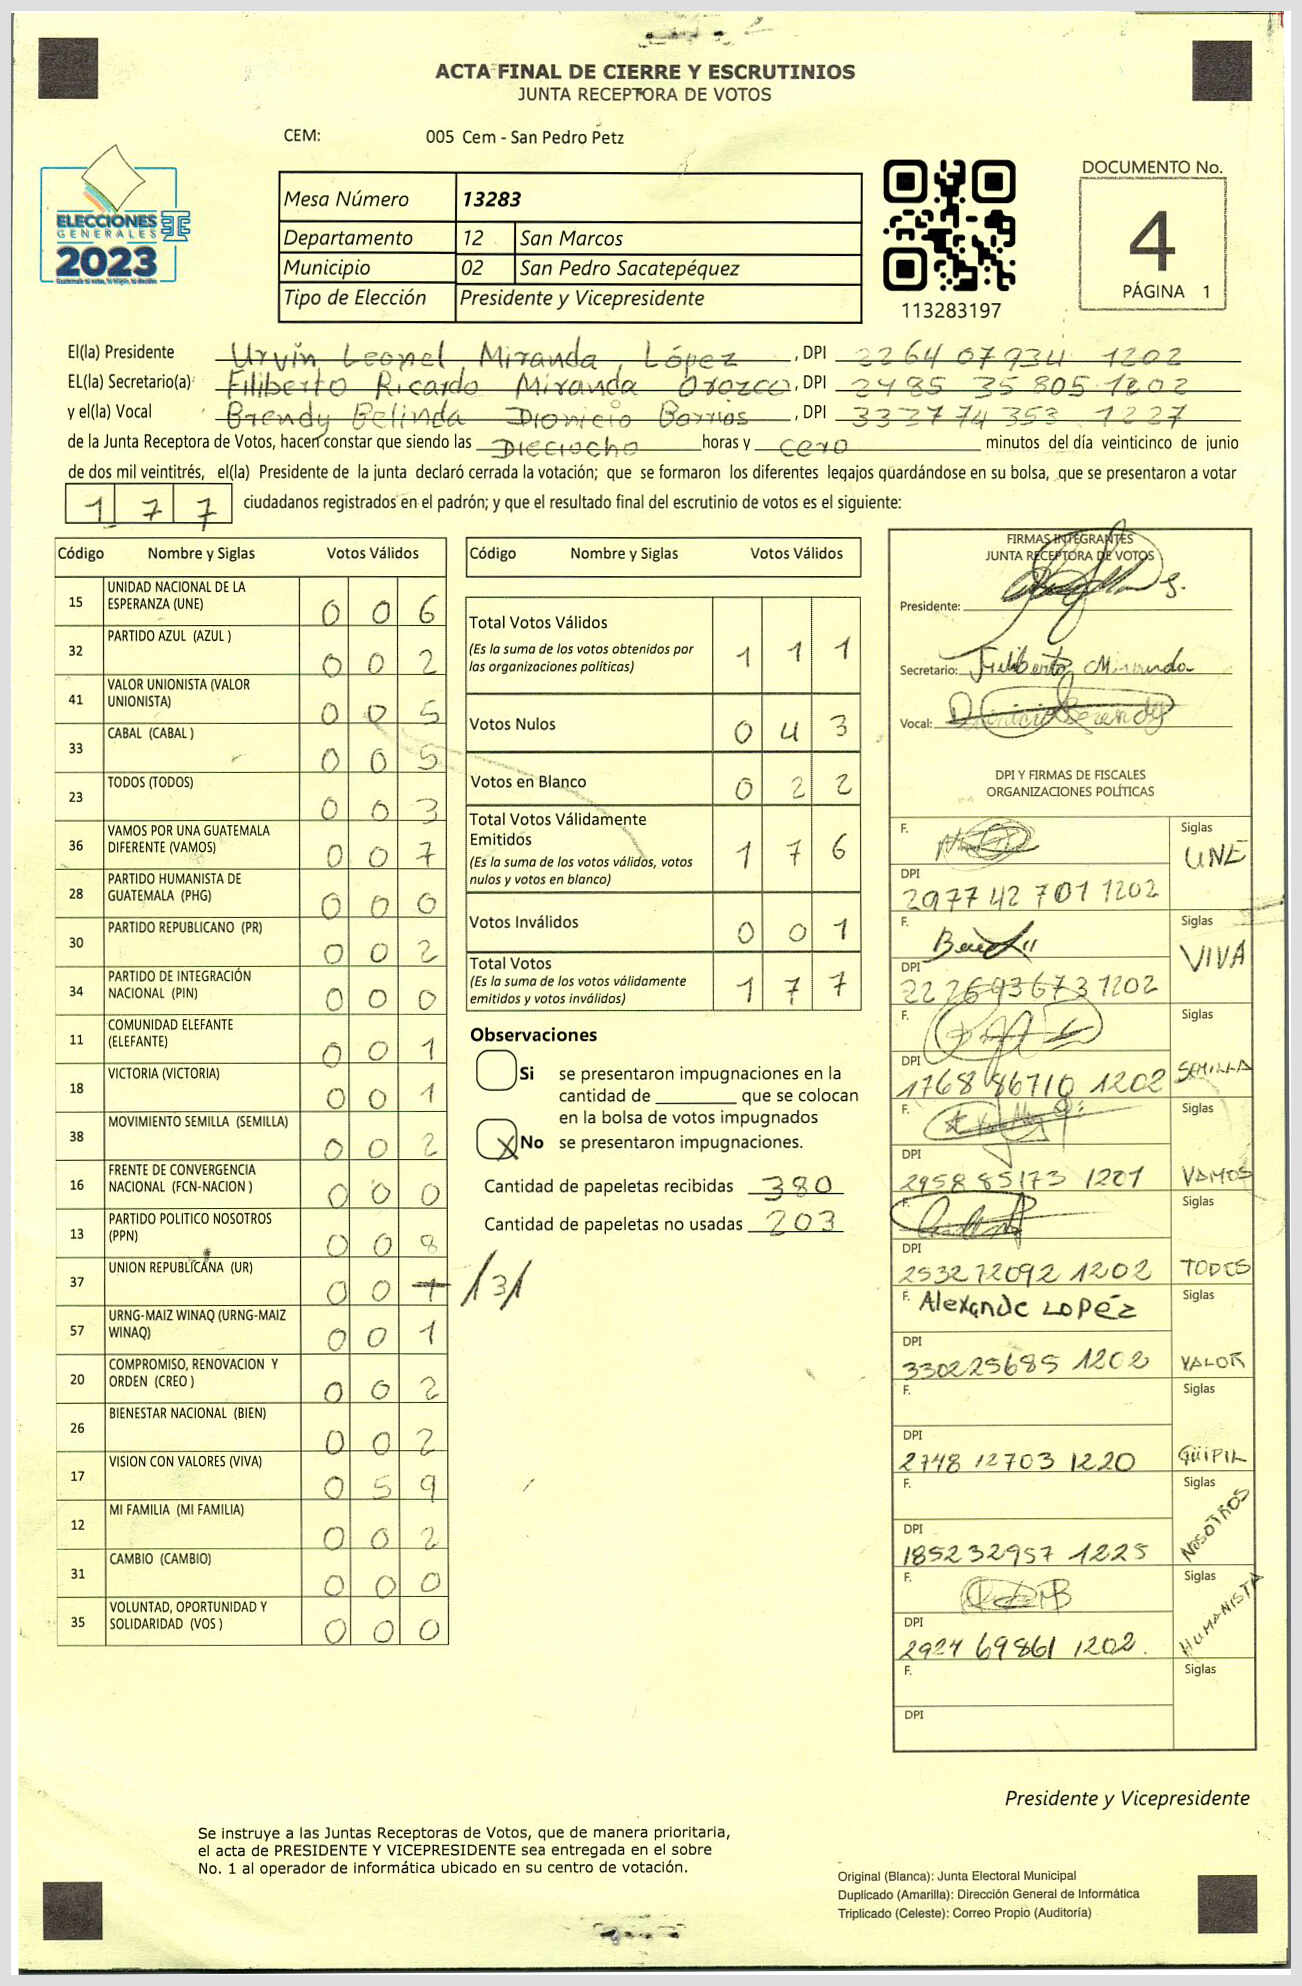 ACTA FINAL DE CIERRE Y ESCRUTINIOS
JUNTA RECEPTORA DE VOTOS
CEM: 005 Cem - San Pedro Petz
ELECCIONES
GENERALES
2023
Mesa Número 13283
Departamento 12 San Marcos
Municipio 02 San Pedro Sacatepéquez
Tipo de Elección Presidente y Vicepresidente
113283197
DOCUMENTO No.
4
PÁGINA 1
El(la) Presidente Urvin Leonel Miranda López, DPI 2264 07934 1202
EL(la) Secretario(a): Filiberto Ricardo Miranda Orozco, DPI 2485 35 805 1202
y el(la) Vocal Brendy Belinda Dionicio Barrios, DPI 3327 74 353 1227
de la Junta Receptora de Votos, hacen constar que siendo las Dieciocho horas y cero minutos del día veinticinco de junio
de dos mil veintitrés, el(la) Presidente de la junta declaró cerrada la votación; que se formaron los diferentes legajos guardándose en su bolsa, que se presentaron a votar
1 7 7 ciudadanos registrados en el padrón; y que el resultado final del escrutinio de votos es el siguiente:
Código Nombre y Siglas Votos Válidos
15 UNIDAD NACIONAL DE LA ESPERANZA (UNE) 0 0 6
32 PARTIDO AZUL (AZUL ) 0 0 2
41 VALOR UNIONISTA (VALOR UNIONISTA) 0 0 5
33 CABAL (CABAL ) 0 0 5
23 TODOS (TODOS) 0 0 3
36 VAMOS POR UNA GUATEMALA DIFERENTE (VAMOS) 0 0 7
28 PARTIDO HUMANISTA DE GUATEMALA (PHG) 0 0 0
30 PARTIDO REPUBLICANO (PR) 0 0 2
34 PARTIDO DE INTEGRACIÓN NACIONAL (PIN) 0 0 0
11 COMUNIDAD ELEFANTE (ELEFANTE) 0 0 1
18 VICTORIA (VICTORIA) 0 0 1
38 MOVIMIENTO SEMILLA (SEMILLA) 0 0 2
16 FRENTE DE CONVERGENCIA NACIONAL (FCN-NACION ) 0 0 0
13 PARTIDO POLITICO NOSOTROS (PPN) 0 0 8
37 UNION REPUBLICANA (UR) 0 0 1 /3/
57 URNG-MAIZ WINAQ (URNG-MAIZ WINAQ) 0 0 1
20 COMPROMISO, RENOVACION Y ORDEN (CREO ) 0 0 2
26 BIENESTAR NACIONAL (BIEN) 0 0 2
17 VISION CON VALORES (VIVA) 0 5 9
12 MI FAMILIA (MI FAMILIA) 0 0 2
31 CAMBIO (CAMBIO) 0 0 0
35 VOLUNTAD, OPORTUNIDAD Y SOLIDARIDAD (VOS ) 0 0 0
Código Nombre y Siglas Votos Válidos
Total Votos Válidos 1 1 1
(Es la suma de los votos obtenidos por
las organizaciones políticas)
Votos Nulos 0 4 3
Votos en Blanco 0 2 2
Total Votos Válidamente
Emitidos 1 7 6
(Es la suma de los votos válidos, votos
nulos y votos en blanco)
Votos Inválidos 0 0 1
Total Votos 1 7 7
(Es la suma de los votos válidamente
emitidos y votos inválidos)
Observaciones
Si se presentaron impugnaciones en la
cantidad de ________ que se colocan
en la bolsa de votos impugnados
X No se presentaron impugnaciones.
Cantidad de papeletas recibidas 380
Cantidad de papeletas no usadas 203
FIRMAS INTEGRANTES
JUNTA RECEPTORA DE VOTOS
Presidente:
Secretario: Filiberto Miranda
Vocal: Dionicio Brendy
DPI Y FIRMAS DE FISCALES
ORGANIZACIONES POLÍTICAS
F. Siglas UNE
DPI 2977 42 701 1202
F. Siglas VIVA
DPI 22 26936731202
F. Siglas SEMILLA
DPI 1768 86710 1202
F. Siglas VAMOS
DPI 2958 85173 1201
F. Siglas TODOS
DPI 253272092 1202
F. Alexande LOPéz Siglas VALOR
DPI 330225685 1202
F. Siglas GÜIPIL
DPI 2748 12703 1220
F. Siglas NOSOTROS
DPI 185232957 1225
F. Siglas HUMANISTA
DPI 2924 69861 1202.
F. Siglas
DPI
Presidente y Vicepresidente
Se instruye a las Juntas Receptoras de Votos, que de manera prioritaria,
el acta de PRESIDENTE Y VICEPRESIDENTE sea entregada en el sobre
No. 1 al operador de informática ubicado en su centro de votación.
Original (Blanca): Junta Electoral Municipal
Duplicado (Amarilla): Dirección General de Informática
Triplicado (Celeste): Correo Propio (Auditoría)